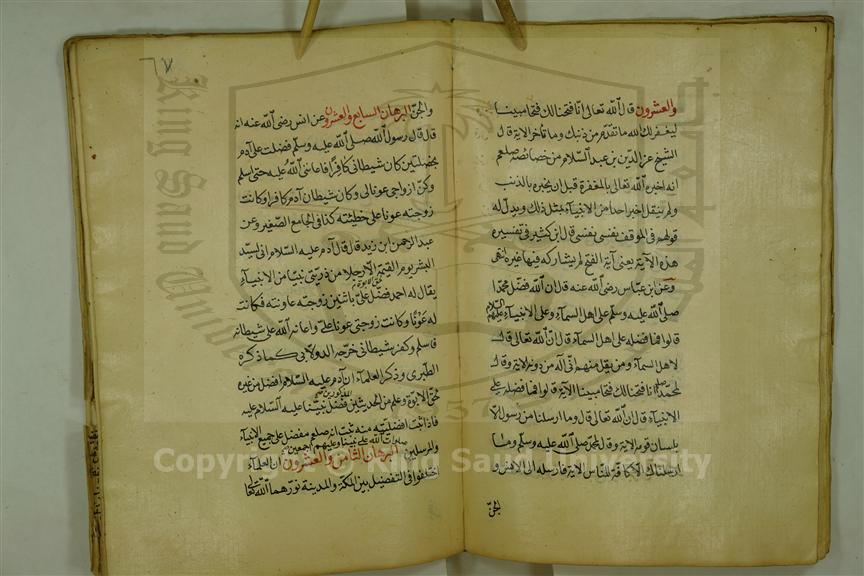 والعشرون قال الله تعالى انا فتحنا لك فتحا مبينا
ليغفر لك الله ما تقدم من ذنبك وما تأخر الاية قال
الشيخ عز الدين بن عبد السلام من خصائصه صلعم
انه اخبره الله تعالى بالمغفرة قبل ان يخبره بالذنب
ولم ينقل اخبر احدا من الانبياء بمثل ذلك ويدل له
قولهم في الموقف نفسي نفسي قال ابن كثير في تفسيره
هذه الآية يعني آية الفتح لم يشاركه فيها غيره انتهى
وعن ابن عباس رضي الله عنه قال ان الله فضل محمدا
صلى الله عليه وسلم على اهل السماء وعلى الانبياء عليهم السلام
قالوا فما فضله على اهل السماء قال ان الله تعالى قال
لاهل السماء ومن يقل منهم اني اله من دونه الاية وقال
لمحمد صلعم انا فتحنا لك فتحا مبينا الاية قالوا فما فضله على
الانبياء قال ان الله تعالى قال وما ارسلنا من رسول الا
بلسان قومه الاية وقال لمحمد صلى الله عليه وسلم وما
ارسلناك الا كافة للناس الاية فارسله الى الانس و
الجن
٦٧
والجن البرهان السابع والعشرون عن انس رضي الله عنه انه
قال قال رسول الله صلى الله عليه وسلم فضلت على آدم
بخصلتين كان شيطاني كافرا فاعانني الله عليه حتى اسلم
وكن ازواجي عونا لي وكان شيطان آدم كافرا وكانت
زوجته عونا على خطيئته كذا في الجامع الصغير وعن
عبد الرحمن ابن زيد قال قال آدم عليه السلام اني لسيد
البشر يوم القيمة الا رجلا من ذريتي نبيا من الانبياء
يقال له احمد فضل علي باثنين زوجته عاونته فكانت
له عونا وكانت زوجتي عونا علي واعانه الله على شيطانه
فاسلم وكفر شيطاني خرجه الدولابي كما ذكره
الطبري وذكر العلماء ان آدم عليه السلام افضل من غيره
لحق الابوة وعلم من الحديثين فضل نبينا عليه السلام عليه
فاذا ثبت افضليته منه ثبت انه صلعم مفضل على جميع الانبياء
والمرسلين صلوات الله على نبينا وعليهم اجمعين البرهان الثامن والعشرون ان العلماء
اختلفوا في التفضيل بين المكة والمدينة نورهما الله تعالى
King Saud University
1957
Copyright © King Saud University